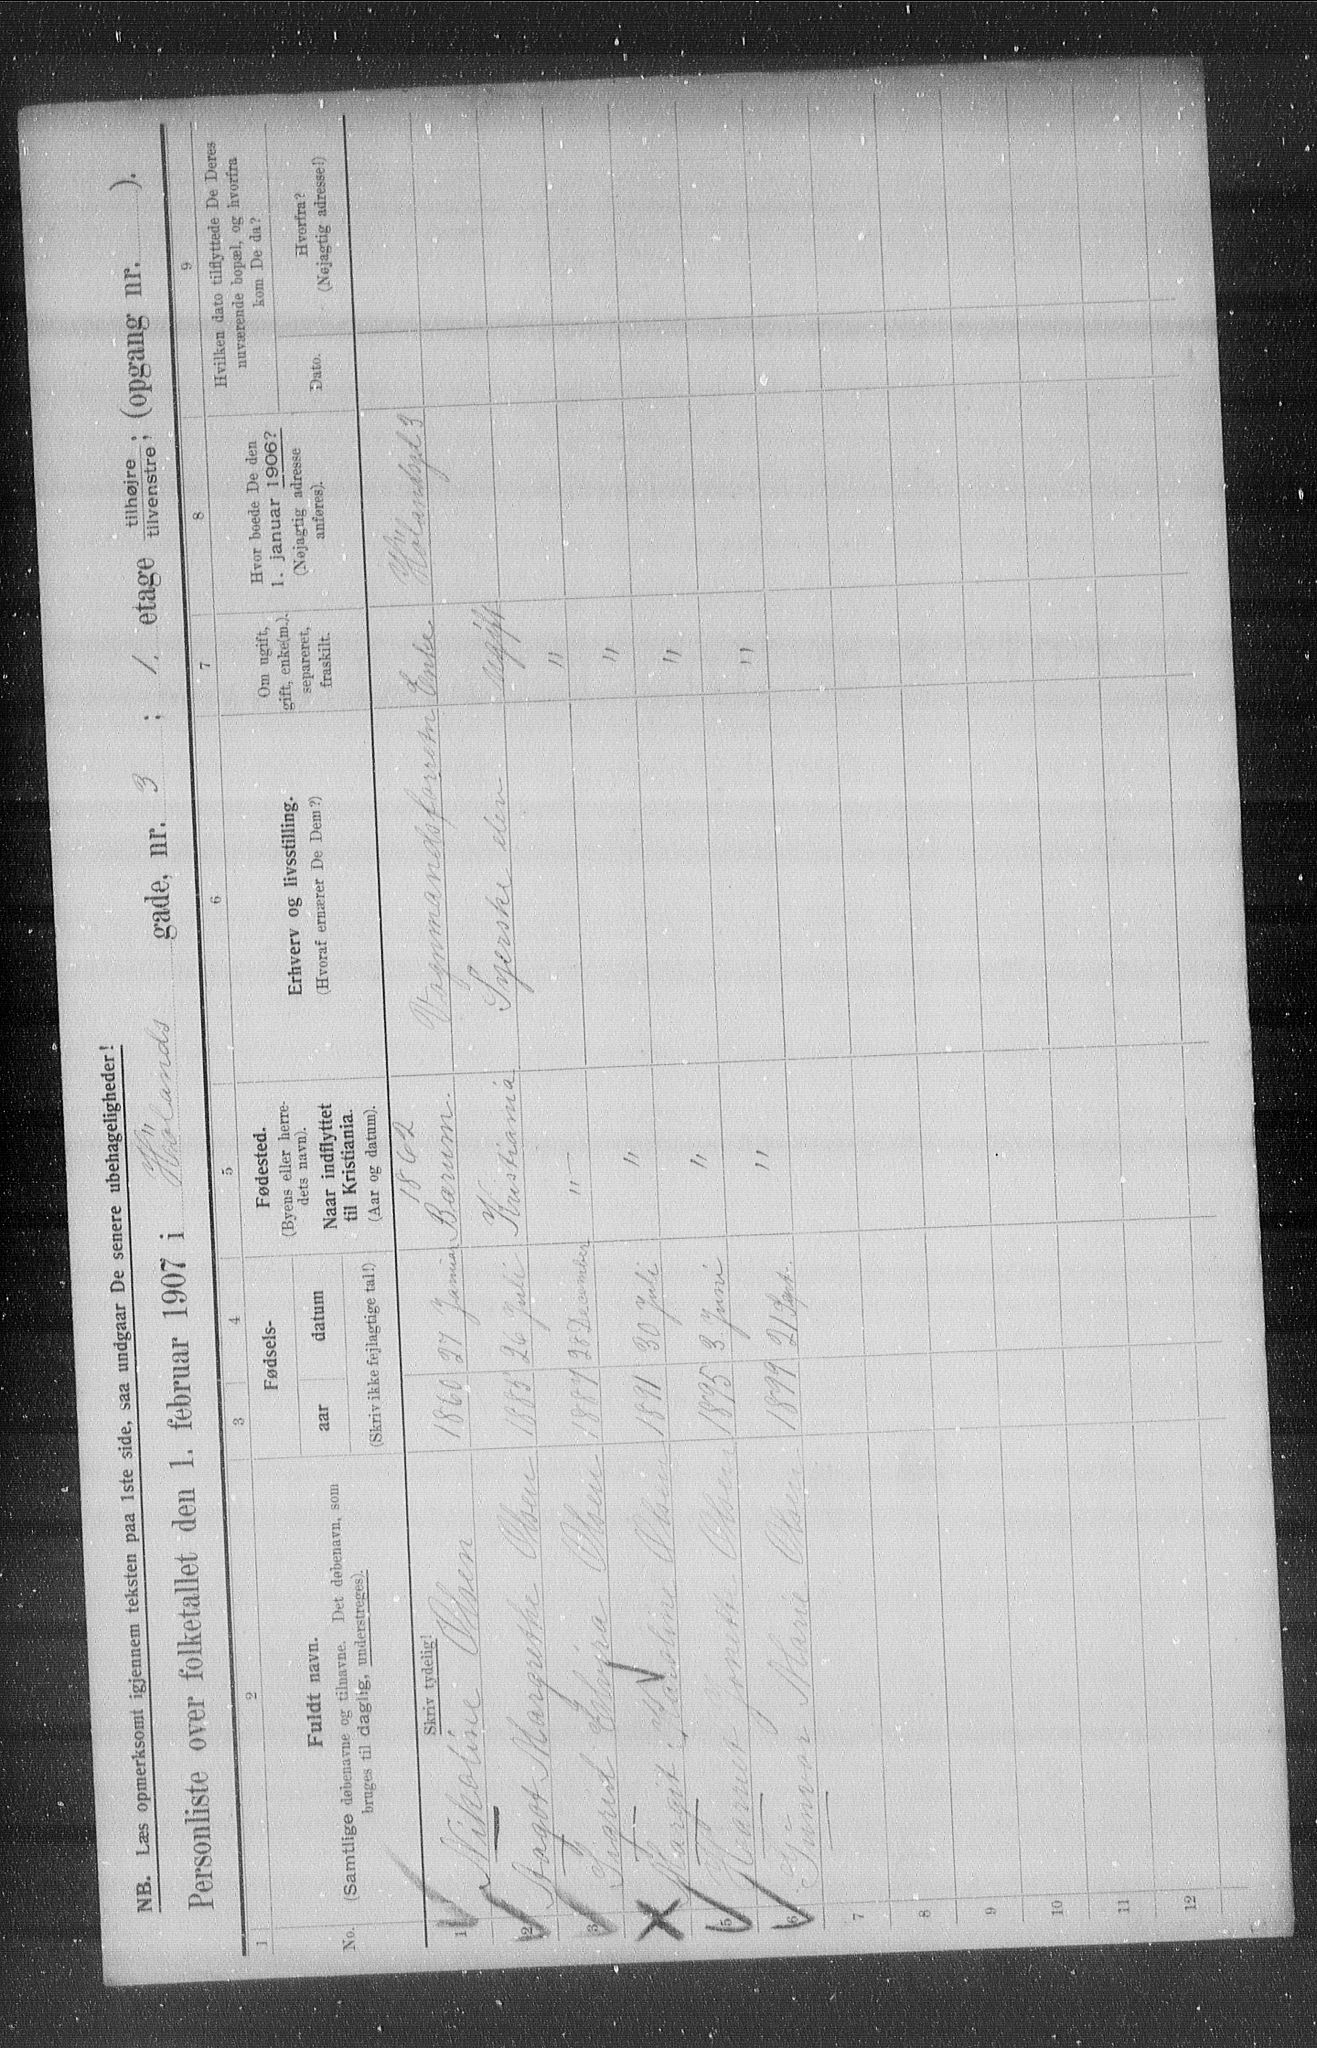 NB. Læs opmerksomt igjennem teksten paa 1ste side, saa undgaar De senere ubehageligheder!
Personliste over folketallet den 1. februar 1907 i Hölands gade, nr. 3 ; 1. etage tilhøjre ; tilvenstre ; (opgang nr. ).
1 2 3 4 5 6 7 8 9
No.
Fuldt navn.
(Samtlige døbenavne og tilnavne. Det døbenavn, som
bruges til daglig, understreges).
Fødsels-
aar datum
(Skriv ikke fejlagtige tal!)
Fødested.
(Byens eller herre-
dets navn).
Naar indflyttet
til Kristiania.
(Aar og datum).
Erhverv og livsstilling.
(Hvoraf ernærer De Dem?)
Om ugift,
gift, enke(m.).
separeret,
fraskilt.
Hvor boede De den
1. januar 1906?
(Nøjagtig adresse
anføres).
Hvilken dato tilflyttede De Deres
nuværende bopæl, og hvorfra
kom De da?
Dato.
Hvorfra?
(Nøjagtig adresse!)
Skriv tydelig!
1862
1 Nikoline Olsen 1860 27 Januar Bærum. Vognmandsforretn Enke Hölandsgd 3
2 Aagot Margrethe Olsen 1885 26 Juli Kristiania Syerske elev ugift
3 Sigrid Elvira Olsen 1887 28 December "— "
Margit Karoline Olsen 1891 30 Juli " "
5 Harriet Olsen 1895 3 Juni " "
6 Gunvor Marie Olsen 1899 21 Sept. " "
7
8
9
10
11
12